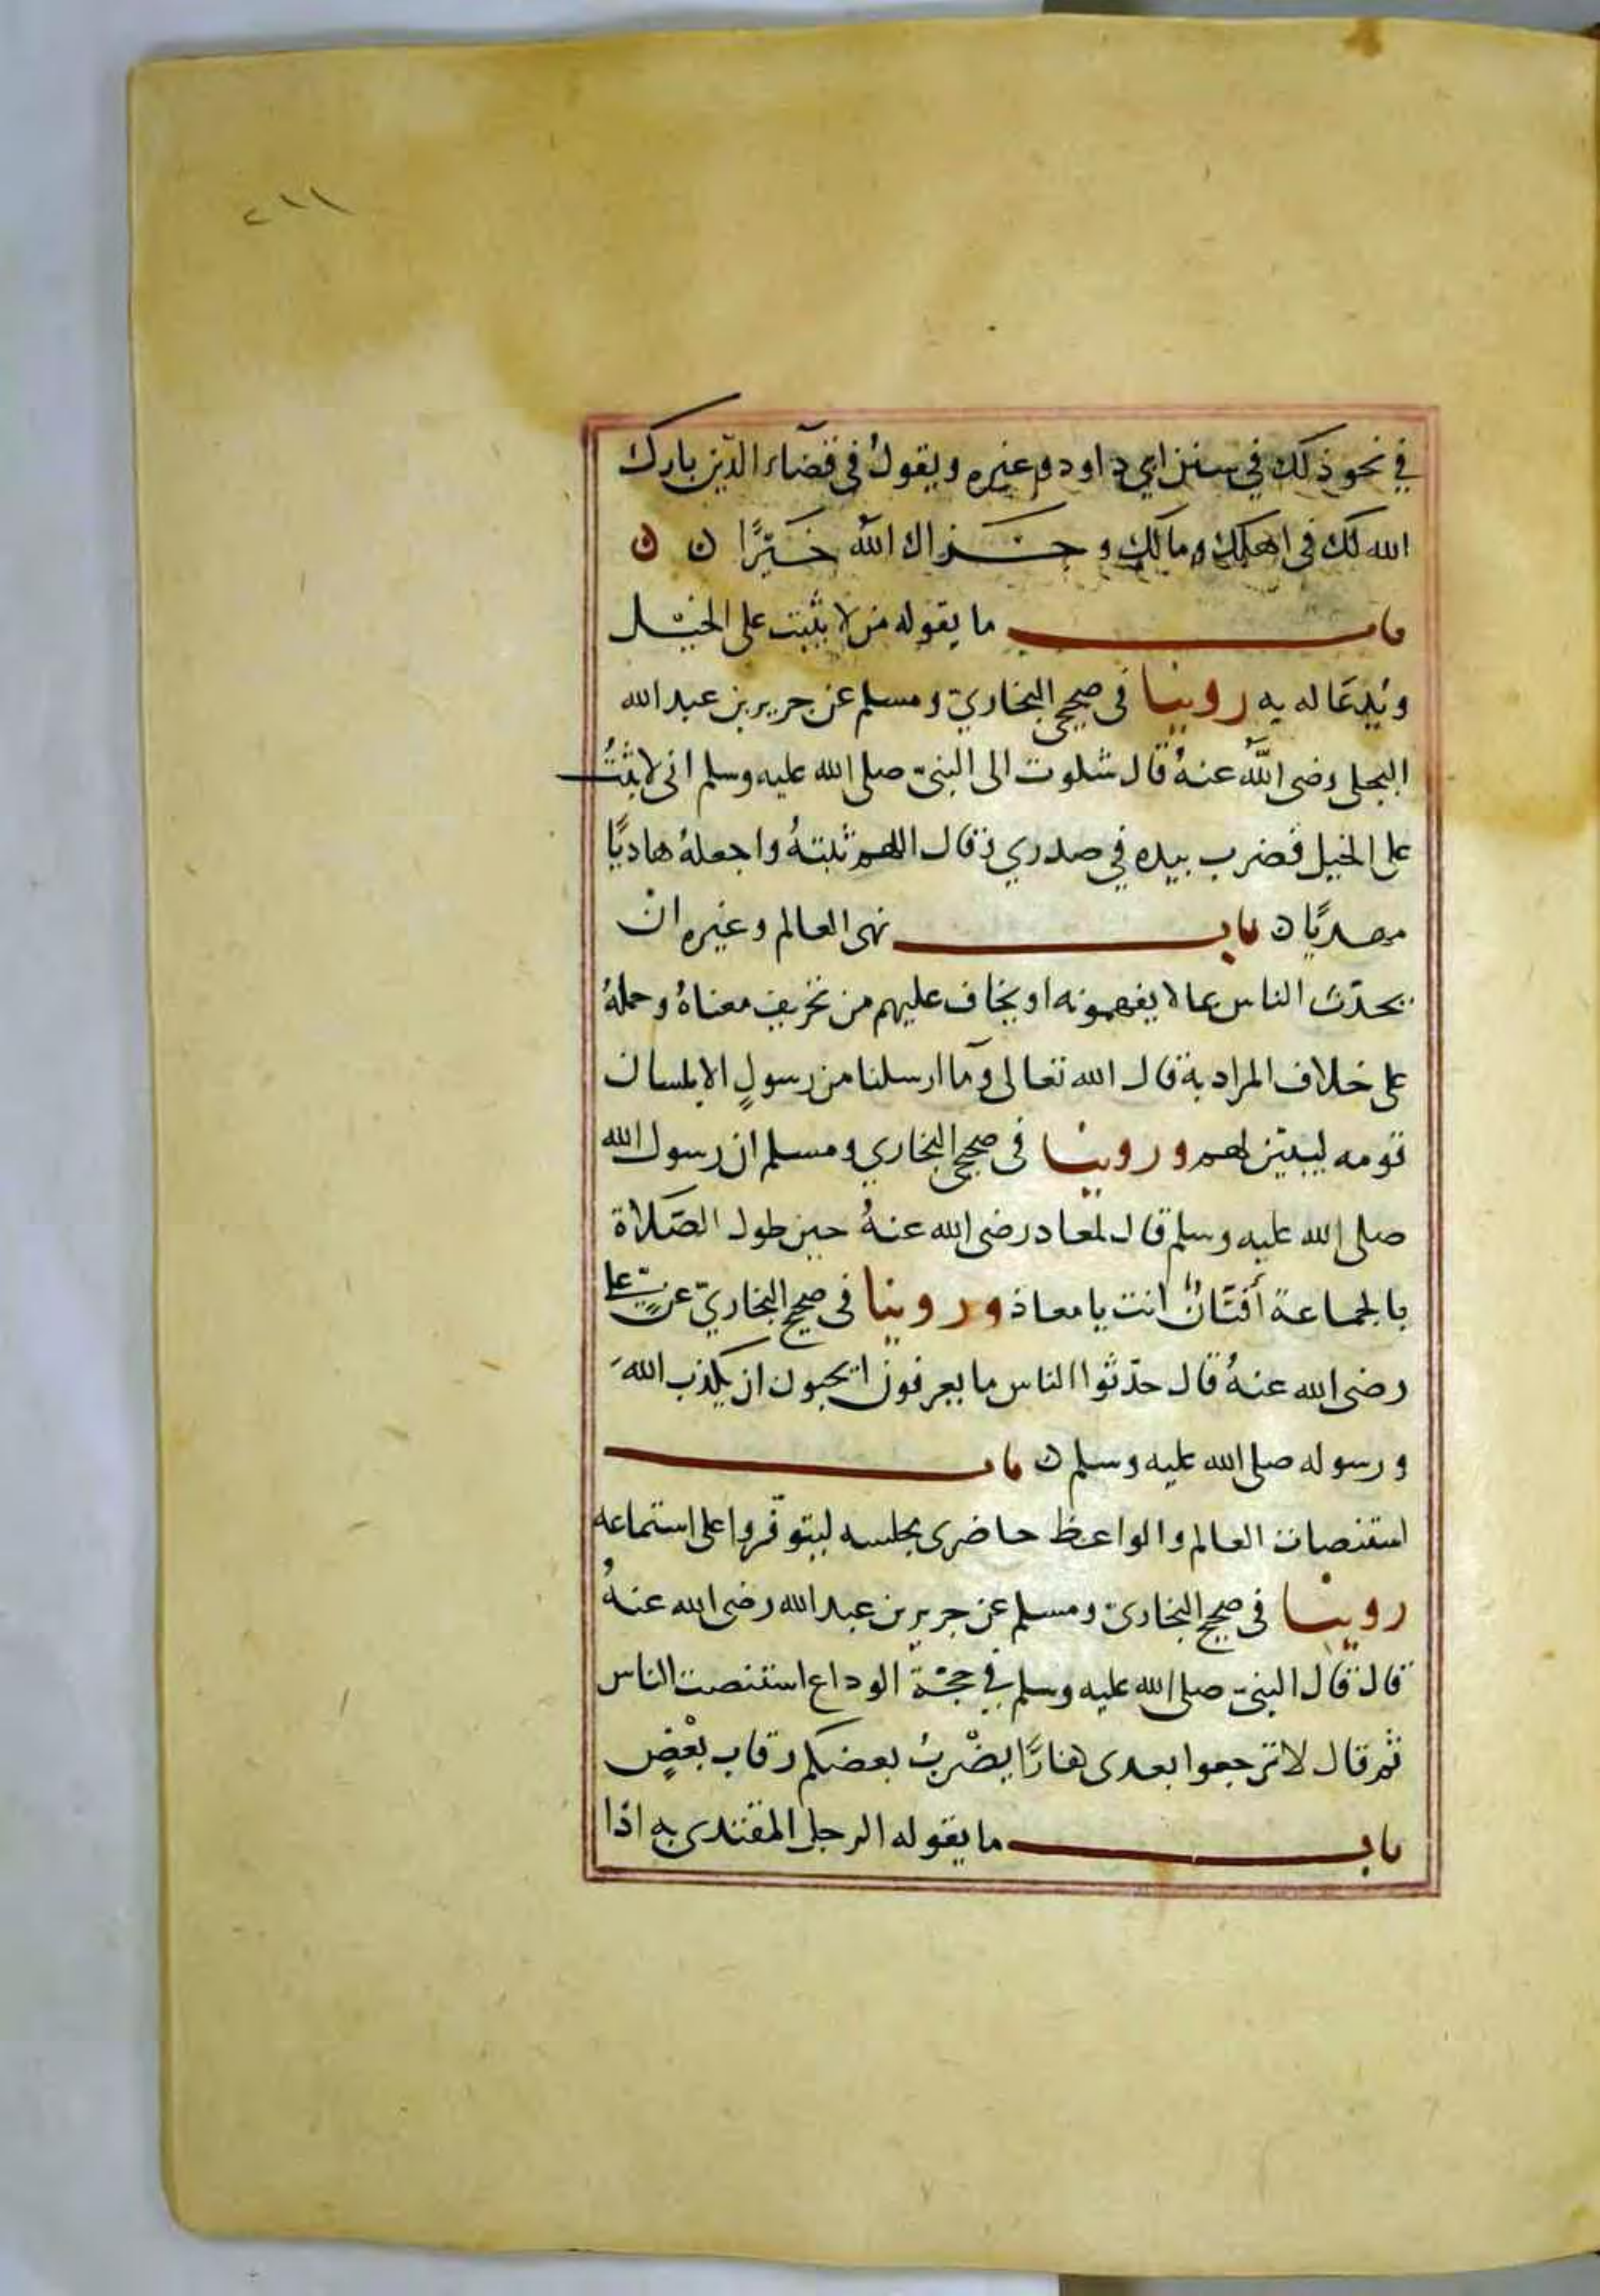 ٢١١
في نحو ذلك في سنن ابي داود وغيره ويقولُ في قضآء الدّين بارك
الله لك في اهلك ومالك وجزاك اللهُ خيْرًا ن ن
باب ما يقوله من لا يثبت على الخيل
ويُدعَا له به روينا في صحيح البخاريّ ومسلم عن جرير بن عبد الله
البجلي رضي اللهُ عنهُ قال شكوت الى النبيّ صلى الله عليه وسلم اني لا اثبتُ
على الخيل فضرب بيده في صدري وقال اللهم ثبتهُ واجعلهُ هاديًا
مهديًا ن باب نهى العالم وغيره انْ
يحدّث الناس بما لا يفهمونه او يخاف عليهم من تحريف معناهُ وحملهُ
على خلاف المراد به قال الله تعالى ومآ ارسلنا من رسولٍ الا بلسان
قومه ليبيّن لهم وروينا في صحيح البخاري ومسلم ان رسول الله
صلى الله عليه وسلم قال لمعاد رضي الله عنهُ حين طول الصَّلاة
بالجماعة أفتّانٌ انت يا معاذ وروينا في صحيح البخاريّ عن عليّ
رضي الله عنهُ قال حدّثوا الناس ما يعرفون اتحبون ان يكذب اللهَ
ورسوله صلى الله عليه وسلم ن باب
استنصات العالم والواعظ حاضرى مجلسه ليتوفّروا على استماعه
روينا في صحيح البخاريّ ومسلم عن جرير بن عبد الله رضي الله عنهُ
قال قال النبيّ صلى الله عليه وسلم في حجّة الوداع استنصت الناس
ثم قال لا ترجعوا بعدى كفارًا يضْربُ بعضكم رقاب بعْضٍ
باب ما يقوله الرجل المقتدى به اذا